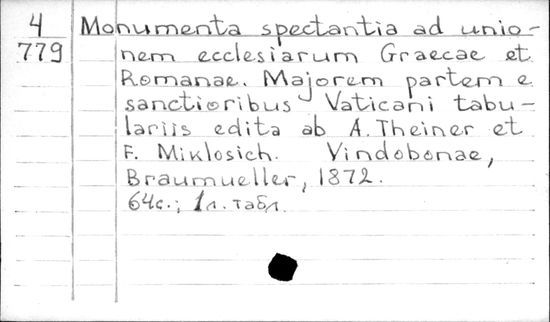 4 Monumenta spectantia ad unio-
779 nem ecclesiarum Graecae et
Romanae. Majorem partem e
sanctioribus Vaticani tabu-
lariis edita ab A. Theiner et
F. Miklosich. Vindobonae,
Braumueller, 1872.
64с.; 1л. табл.